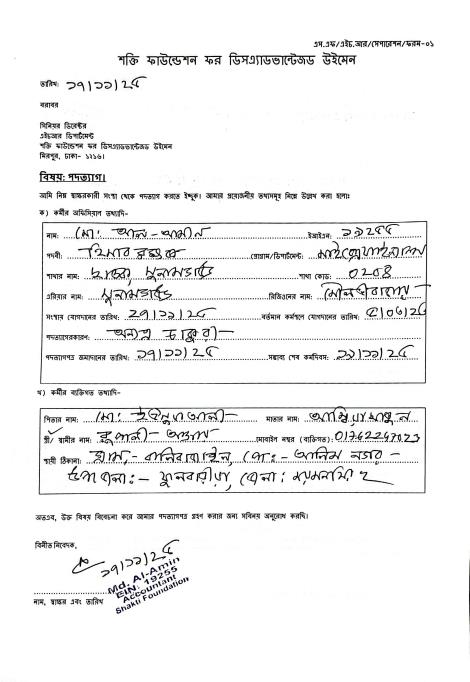 এস.এফ/এইচ.আর/সেপারেশন/ফরম-০১
শক্তি ফাউন্ডেশন ফর ডিসএ্যাডভান্টেজড উইমেন
তারিখ: ২৭/১১/২৫
বরাবর
সিনিয়র ডিরেক্টর
এইচআর ডিপার্টমেন্ট
শক্তি ফাউন্ডেশন ফর ডিসএ্যাডভান্টেজড উইমেন
মিরপুর, ঢাকা- ১২১৬।
বিষয়: পদত্যাগ।
আমি নিম্ন স্বাক্ষরকারী সংস্থা থেকে পদত্যাগ করতে ইচ্ছুক। আমার প্রয়োজনীয় তথ্যসমূহ নিম্নে উল্লেখ করা হলোঃ
ক) কর্মীর অফিসিয়াল তথ্যাদি-
নাম: মো: আল-আমীন ইআইএন: ১৯২৫৫
পদবী: হিসাব রক্ষক প্রোগ্রাম/ডিপার্টমেন্ট: মাইক্রোফাইন্যান্স
শাখার নাম: সুনামগঞ্জ শাখা কোড: 0208
এরিয়ার নাম: সুনামগঞ্জ রিজিওনের নাম:
সংস্থায় যোগদানের তারিখ: বর্তমান কর্মস্থলে যোগদানের তারিখ:
পদত্যাগেরকারণ: অন্যত্র চাকুরী-
পদত্যাগপত্র জমাদানের তারিখ: ২৭/১১/২৫ সম্ভাব্য শেষ কর্মদিবস:
খ) কর্মীর ব্যক্তিগত তথ্যাদি-
পিতার নাম: মো: মাতার নাম:
স্ত্রী/ স্বামীর নাম: মোবাইল নম্বর (ব্যক্তিগত):
স্থায়ী ঠিকানা: গ্রাম:- পো:- নগর -
উপজেলা:- ফুলবাড়ীয়া, জেলা: ময়মনসিংহ
অতএব, উক্ত বিষয় বিবেচনা করে আমার পদত্যাগপত্র গ্রহণ করার জন্য সবিনয় অনুরোধ করছি।
বিনীত নিবেদক,
২৭/১১/২৫
Md. Al-Amin
EIN: 19255
Accountant
Shakti Foundation
নাম, স্বাক্ষর এবং তারিখ